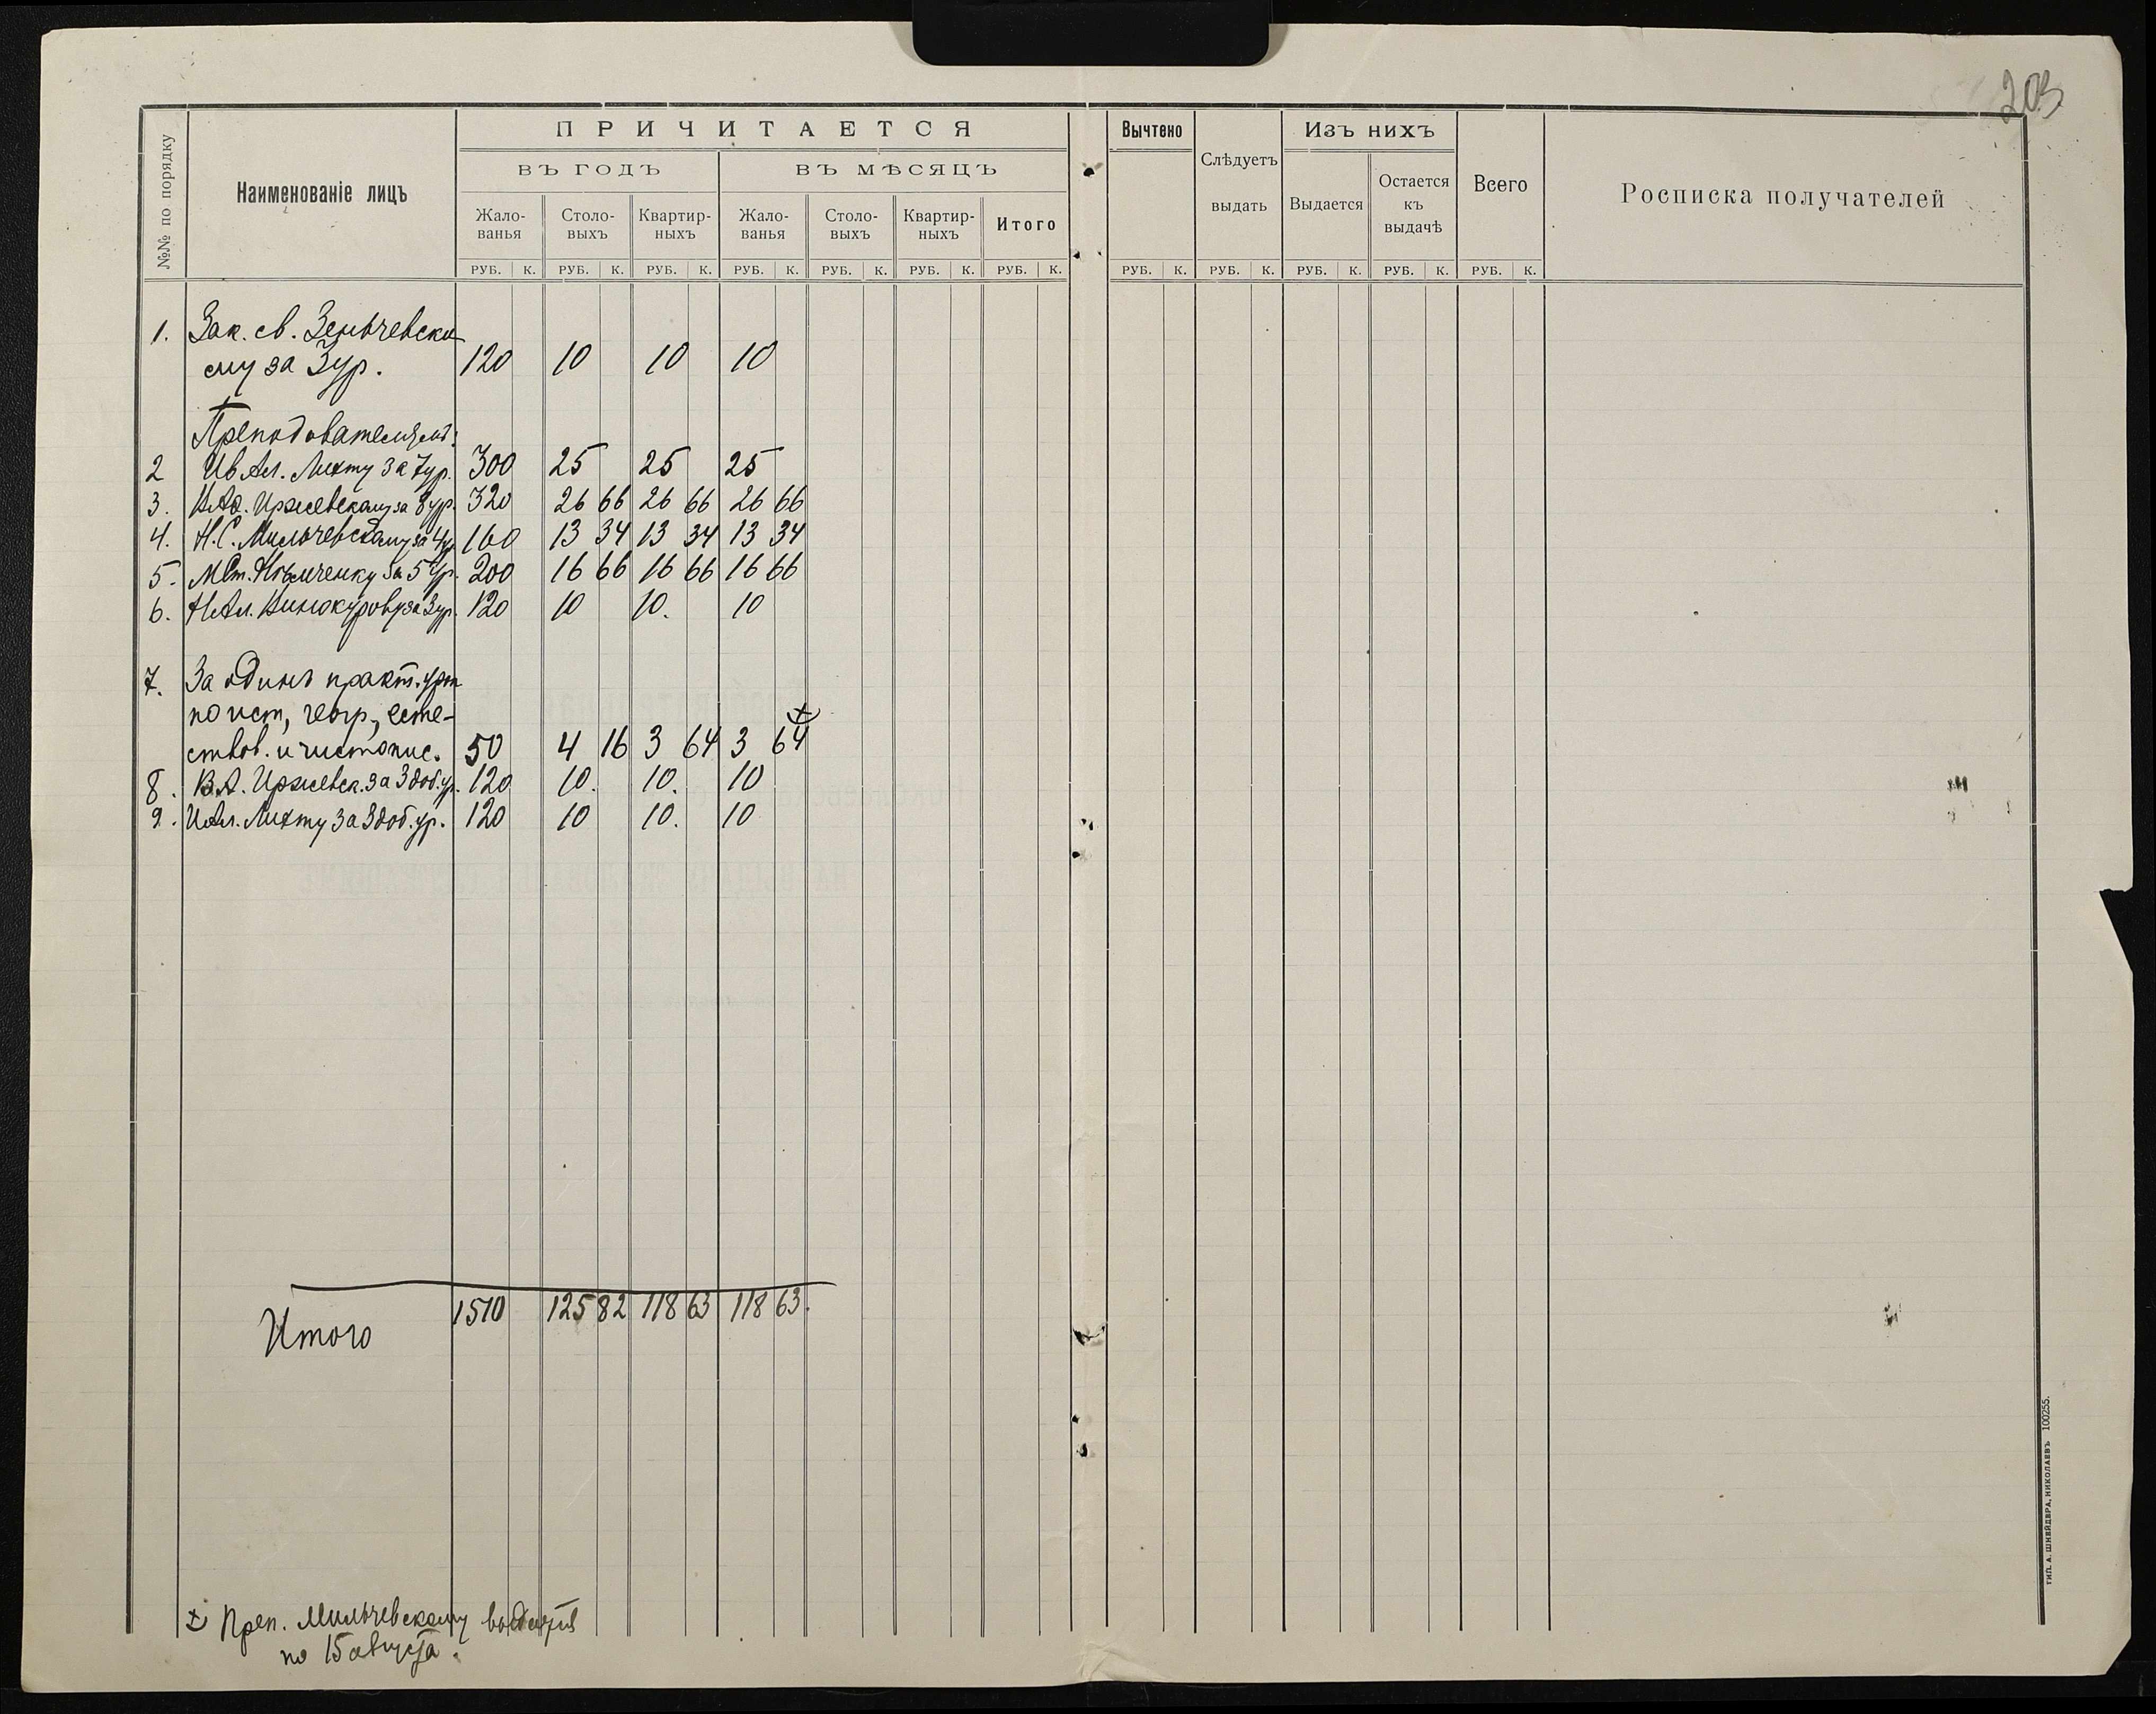 203
ПРИЧИТАЕТСЯ
Вычтено
Изъ нихъ
№№ по порядку
Наименованіе лицъ
ВЪ ГОДЪ
ВЪ МѢСЯЦЪ
Слѣдуетъ
выдать
Выдается
Остается
къ
выдачѣ
Всего
Росписка получателей
Жало-
ванья
Столо-
выхъ
Квартир-
ныхъ
Жало-
ванья
Столо-
выхъ
Квартир-
ныхъ
Итого
РУБ. К. РУБ. К. РУБ. К. РУБ. К. РУБ. К. РУБ. К. РУБ. К. РУБ. К. РУБ. К. РУБ. К. РУБ. К. РУБ. К.
1. Зак. св. Зеньчевско-
му за 3 ур. 120 10 10 10
Преподавателямъ:
2 Ив Ал. Лихту за 7 ур. 300 25 25 25
3. Иржевскому за 8 ур. 320 26 66 26 66 26 66
4. Н. С. Мильчевскому за 4 ур 160 13 34 13 34 13 34
5. М Ст. за 5 ур. 200 16 66 16 66 16 66
6. Н Ал. Винокурову за 3 ур. 120 10 10. 10
7. За одинъ практ. урок
по ист, геогр., есте-
ствов. и чистопис. 50 4 16 3 64 3 64
8. В. А. Иржевск. за 3 доб. ур. 120 10. 10. 10
9. И Ал. Лихту за 3 доб. ур. 120 10 10. 10
Итого 1510 125 82 118 63 118 63.
Преп. Мильчевскому
по 15 августа.
ТИП. А. ШНЕЙДЕРА, НИКОЛАЕВЪ 100255.